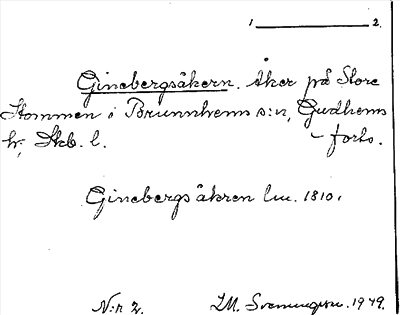 1 2.
Ginebergsåkern. Åker på Store
Stommen i Brunnhems s:n, Gudhems
hr, Skb. l. - forts.
Ginebergsåkren lm. 1810.
N:r 2. I.M. Svenningson. 1949.